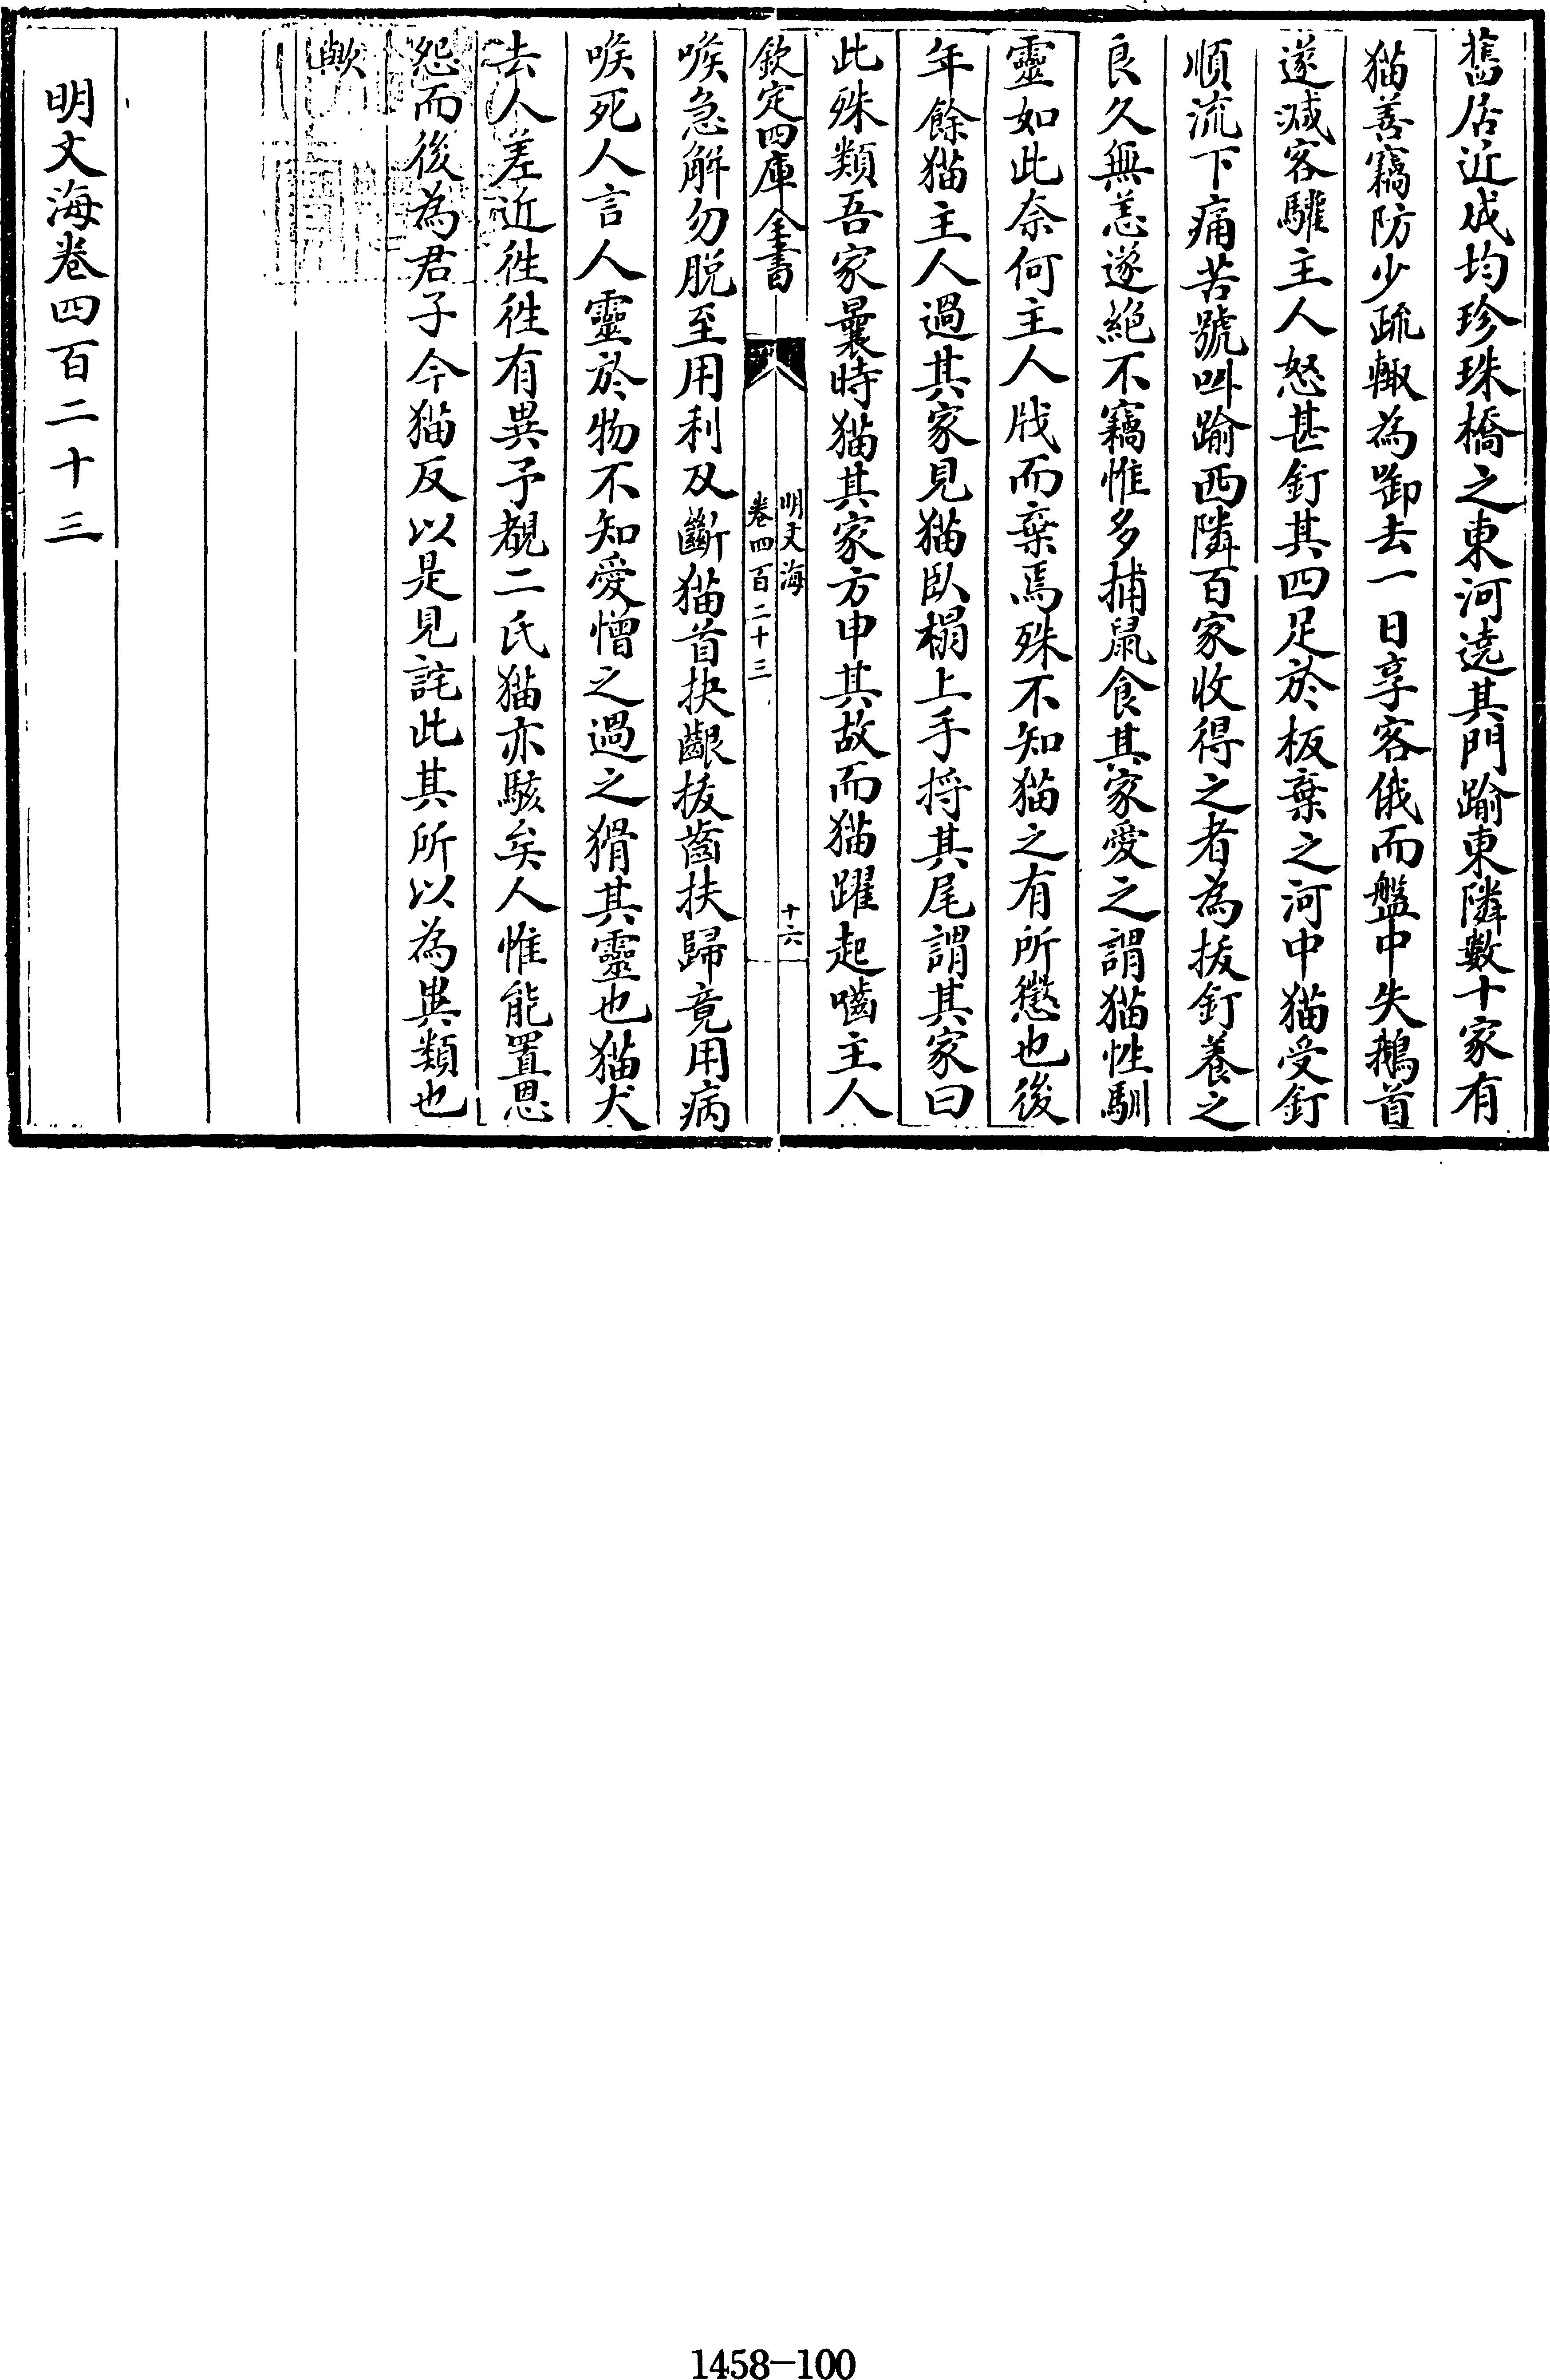 舊居近成均珍珠橋之東河遶其門踰東隣數十家有
猫善竊防少疏輙為啣去一日享客俄而盤中失鵝首
遂减客驩主人怒甚釘其四足於板棄之河中猫受釘
順流下痛苦號呌踰西隣百家收得之者為拔釘養之
良久無恙遂絶不竊惟多捕鼠食其家愛之謂猫性馴
靈如此奈何主人戕而棄焉殊不知猫之有所懲也後
年餘猫主人過其家見猫臥榻上手捋其尾謂其家曰
此殊類吾家曩時猫其家方申其故而猫躍起嚙主人
欽定四庫全書
明文海
卷四百二十三
十六
喉急解勿脱至用利刄斷猫首抉齦拔齒扶歸竟用病
喉死人言人靈於物不知愛憎之過之猾其靈也猫犬
去人差近徃徃有異予覩二氏猫亦駭矣人惟能置恩
怨而後為君子今猫反以是見詫此其所以為異類也
歟
明文海卷四百二十三
1458-100